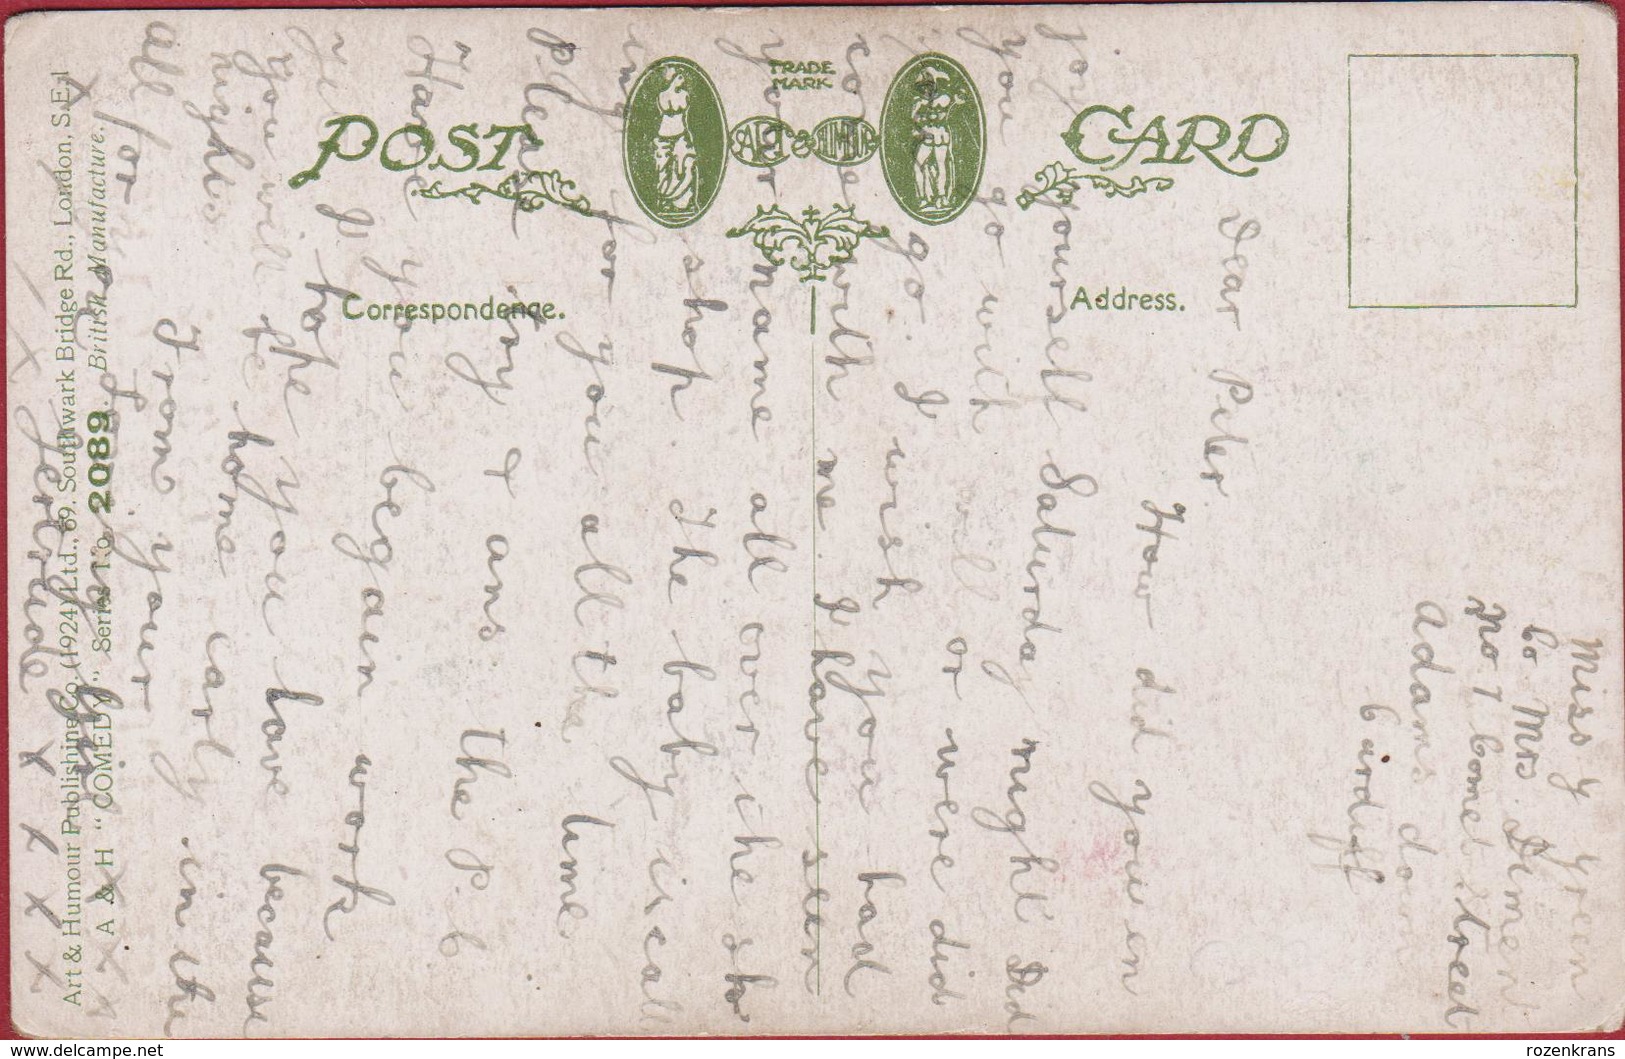 POST CARD
TRADE
MARK
ART & HUMOUR
Correspondence.
Address.
Miss Y Green
Co Mrs. Diment
No 7 Comet Street
Adams down
Cardiff
Dear Peter
How did you in
joy yourself Saturday night Did
you go with will or were did
you go. I wish you had
come with me I have seen
your name all over the sto
shop. The baby is call
ing for you all the time
Please try & ans the P.C
Have you began work
yet I hope you have because
you will be home early in the
nights.
From your
all for
Gertrude x x x x
Art & Humour Publishing Co. (1924) Ltd., 69. Southwark Bridge Rd., London, S.E.1
A & H "COMEDY" Series No. 2089. British Manufacture.
rozenkrans
© www.delcampe.net